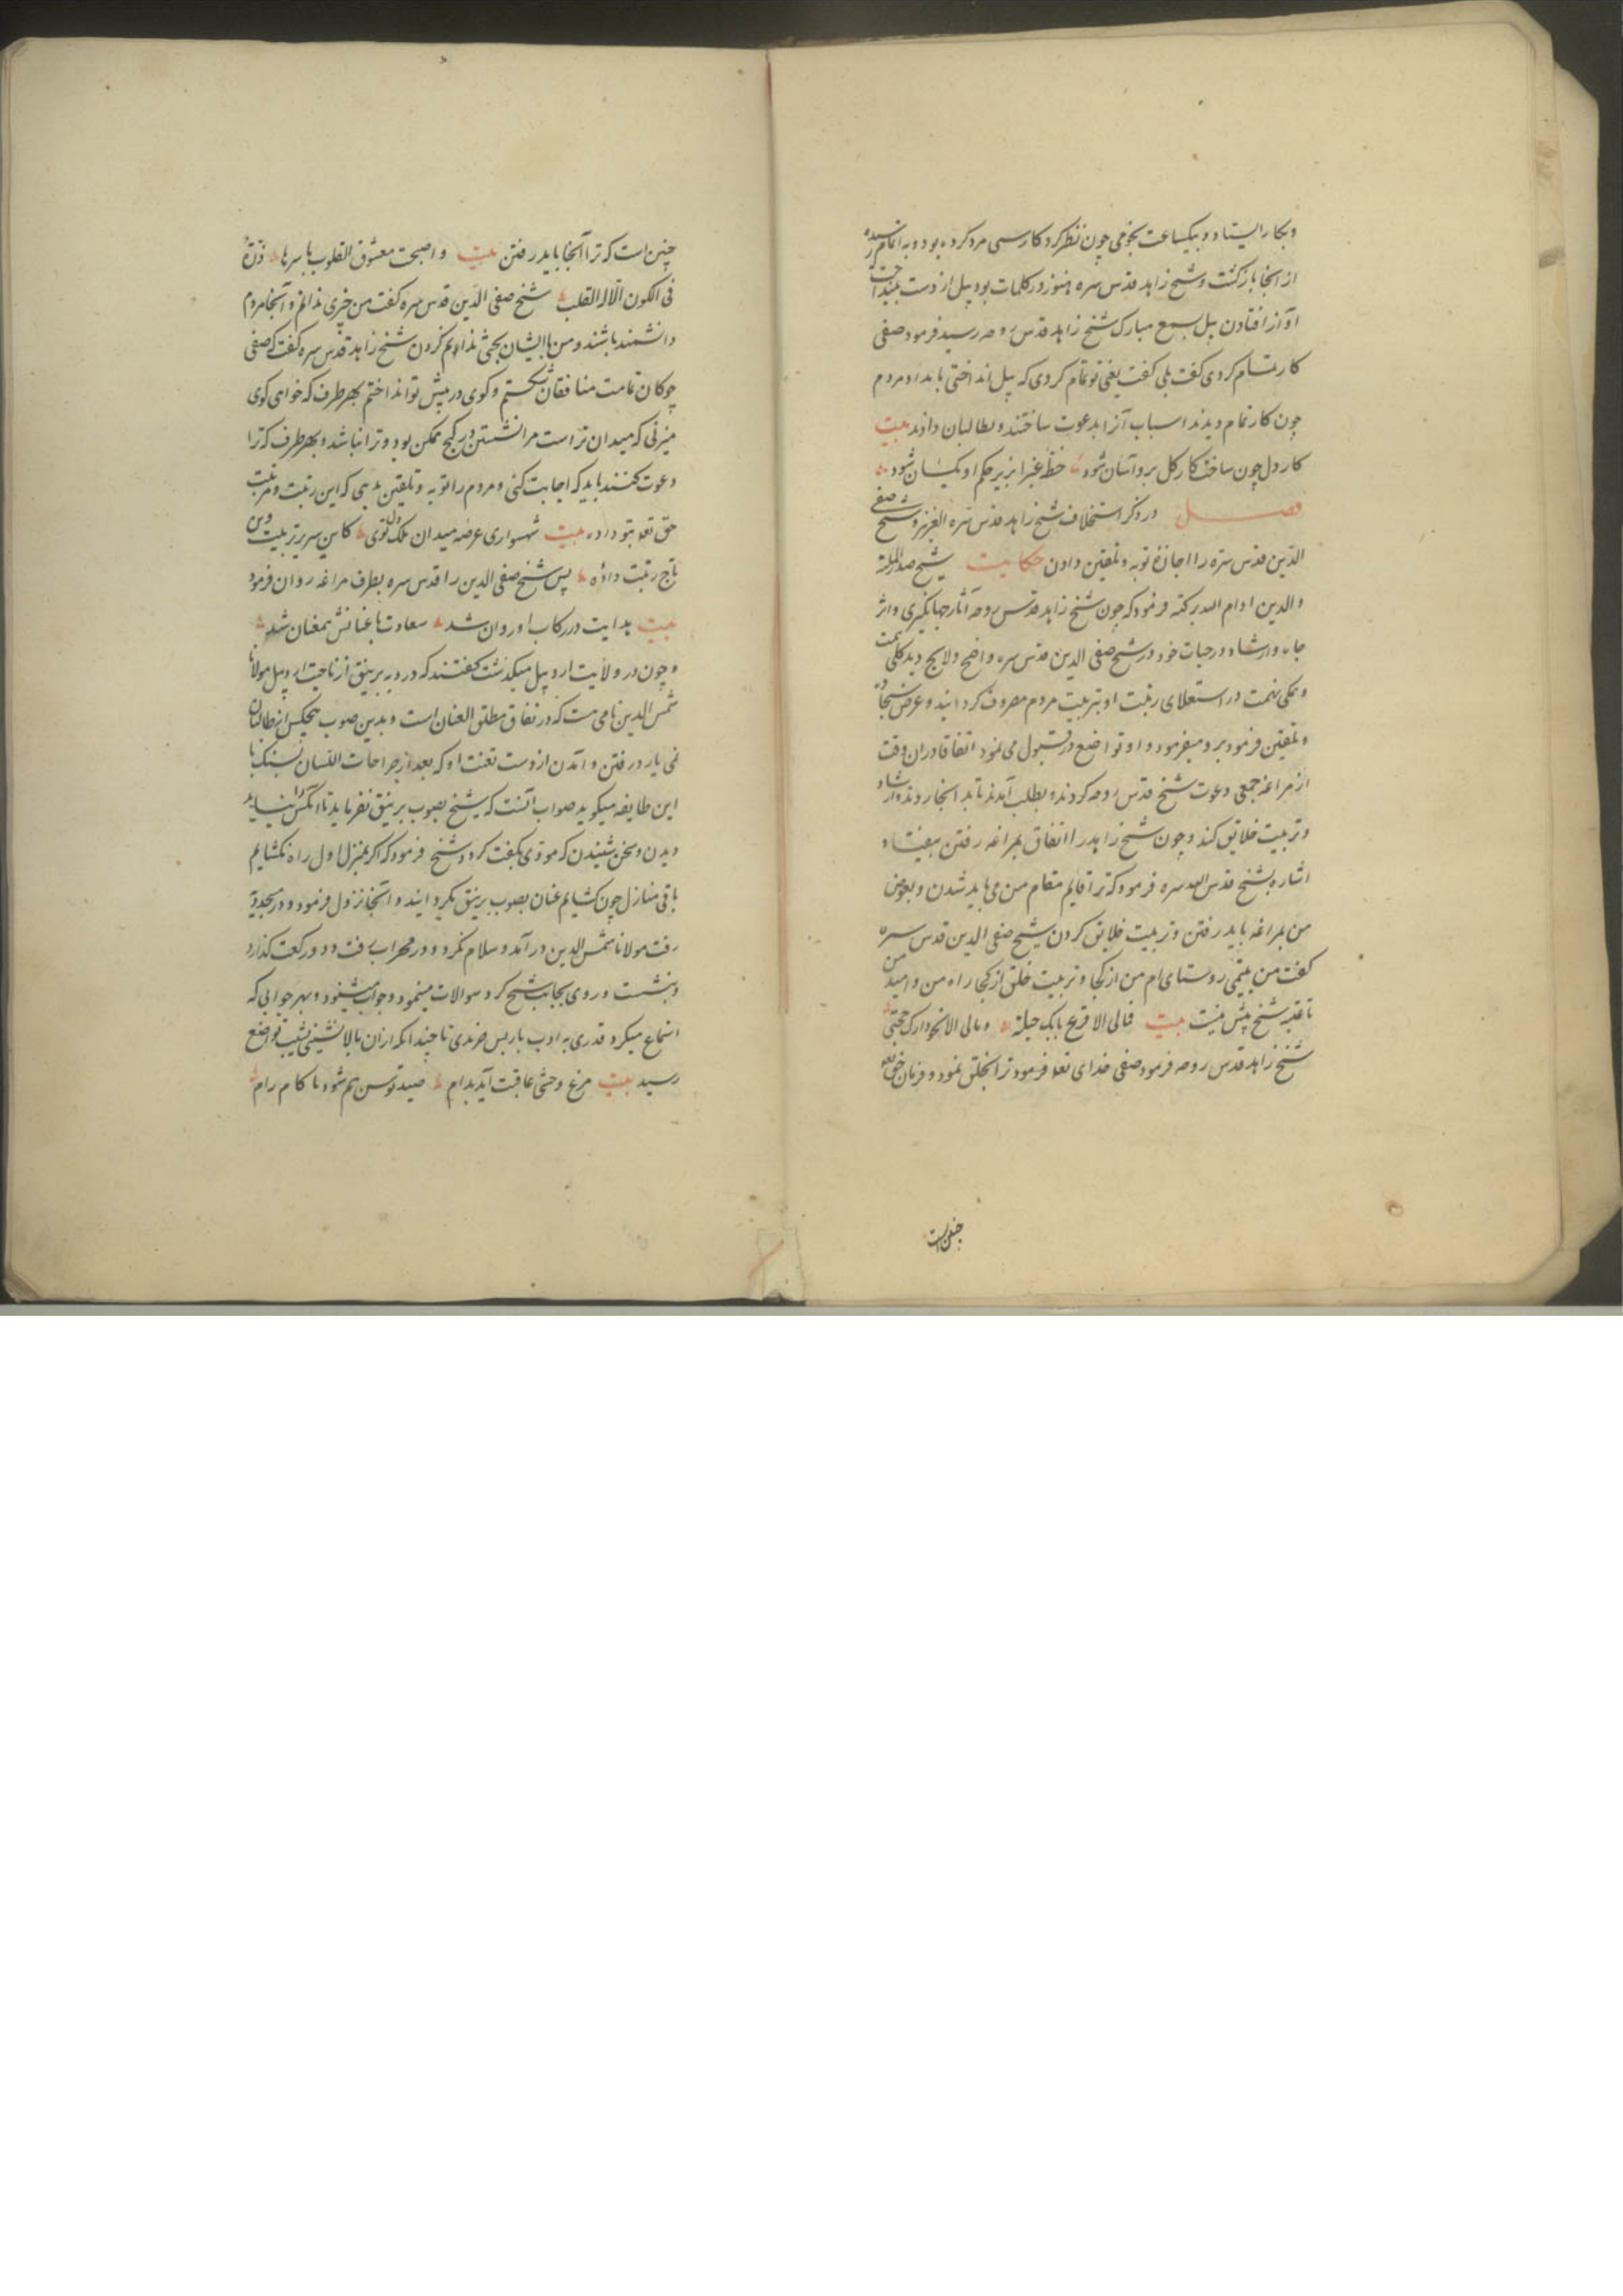 وبکار ایستاد و بیکساعت نجومی چون نظر کرد کار سی مرد کرده بود و به اتمام رسیده
از انجا بازکشت و شیخ زاهد قدس سره هنوز در کلمات بود بیل از دست بینداخت
آواز افتادن بیل بسمع مبارک شیخ زاهد قدس روحه رسید فرمود صفی
کار تمام کردی کفت بلی کفت یعنی تو تمام کردی که بیل انداختی بامداد مردم
چون کار تمام دیدند اسباب آنرا بدعوت ساختند و بطالبان دادند بیت
کار دل چون ساخت کار کل برو آسان شود خط غبرا بزیر حکم او یکسان شود
فصل در ذکر استخلاف شیخ زاهد قدس سره العزیز و شیخ صفی
الدین قدس سره را اجازۀ توبه و تلقین دادن حکایت شیخ صدر الملة
والدین ادام الله برکته فرمود که چون شیخ زاهد قدس روحه آثار جهانکیری و اثر
جاه و ارشاد در حیات خود در شیخ صفی الدین قدس سره واضح و لایح دید کلی همت
و همکی نهمت در استعلای رتبت او بتربیت مردم مصروف کردانید و عرض سجاده
و تلقین فرمود برو میفرمود و او تواضع در قبول می نمود اتفاقا در ان وقت
از مراغه جمعی دعوت شیخ قدس روحه کردند و بطلب آمدند تا بد انجا رود و ارشاد
و تربیت خلایق کند و چون شیخ زاهد را اتفاق بمراغه رفتن نیفتاد
اشاره بشیخ قدس الله سره فرمود که ترا قایم مقام من می باید شدن و بعوض
من بمراغه باید رفتن و تربیت خلایق کردن شیخ صفی الدین قدس سره
کفت من یتیمی روستای ام من از کجا و تربیت خلق از کجا راه من و امید من
تا عتبه شیخ بیش نیست بیت فمالی الا قرع بابک حیلة ومالی الا نحو دارک حجتی
شیخ زاهد قدس روحه فرمود صفی خدای تعه فرمود ترا بخلق نمود و فرمان حق تعه
چنین است
چنین است که ترا آنجا باید رفتن بیت و اصبحت معشوق القلوب باسرها ذرّة
فی الکون الّا له القلب شیخ صفی الدین قدس سره کفت من چیزی ندانم و آنجا مردم
دانشمند باشند و من با ایشان بحثی ندانم کردن شیخ زاهد قدس سره کفت که صفی
چوکان تمامت منافقان شکستم و کوی در پیش تو انداختم بهر طرف که خواهی کوی
میزنی که میدان تراست مرا نشستن در کنج ممکن بود و ترا نباشد و بهر طرف که ترا
دعوت کنند باید که اجابت کنی و مردم را توبه و تلقین بدهی که این رتبت و مرتبت
حق تعه بتو داده بیت شهسواری عرضه میدان ملک دل توی کاین سریر تربیت وین
تاج رتبت داده پس شیخ صفی الدین را قدس سره بطرف مراغه روان فرمود
بیت هدایت در رکاب او روان شد سعادت با عنانش همعنان شد
و چون در ولایت اردبیل میکذشت کفتند که در دیه برینق از ناحیت اردبیل مولانا
شمس الدین نامی هست که در نفاق مطلق العنان است و بدین صوب هیچکس از طالبان
نمی یارد رفتن و آمدن از دست تعنت او که بعد از جراحات اللسان بسنک با
این طایفه میکوید صواب آنست که شیخ بصوب برینق نفرماید تا انکس را نباید
دیدن و سخن شنیدن که موذی بکفت کرد و شیخ فرمود که اکر بمنزل اول راه نکشایم
باقی منازل چون کشایم عنان بصوب برینق بکردانید و آنجا نزول فرمود و در مسجد دیه
رفت مولانا شمس الدین در آمد و سلام نکرد و در محراب رفت و دو رکعت کذارد
و بنشست و روی بجانب شیخ کرد سوالات مینمود و جواب میشنود و بهر جوابی که
استماع میکرد قدری به ادب باز پس میزدی تا چندانکه از ان بالا نشینی بشیب تواضع
رسید بیت مرغ وحشی عاقبت آید بدام صید توسن هم شود ناکام رام